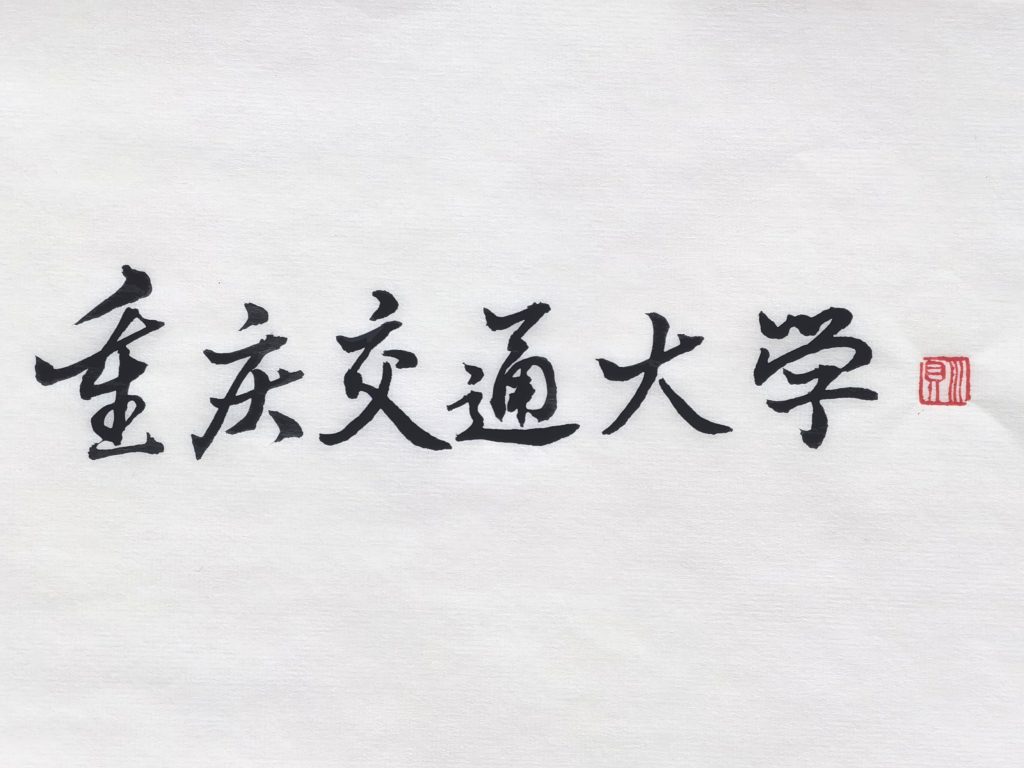 重庆交通大学